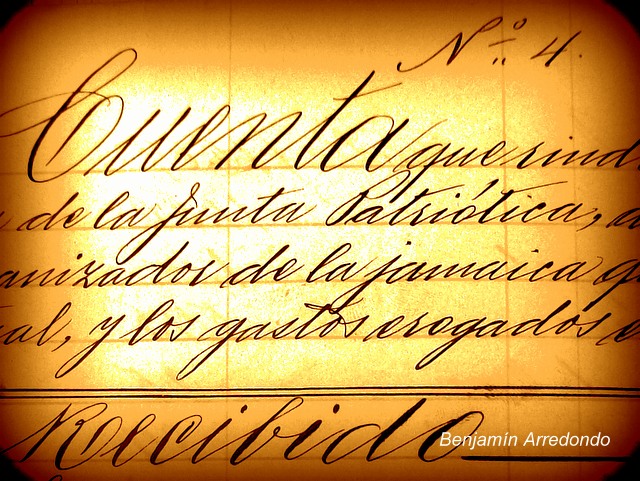 No. 4.
Cuenta que rind
de la Junta Patriótica, d
anizador de la jamaica q
al, y los gastos erogados e
Recibido
Benjamín Arredondo